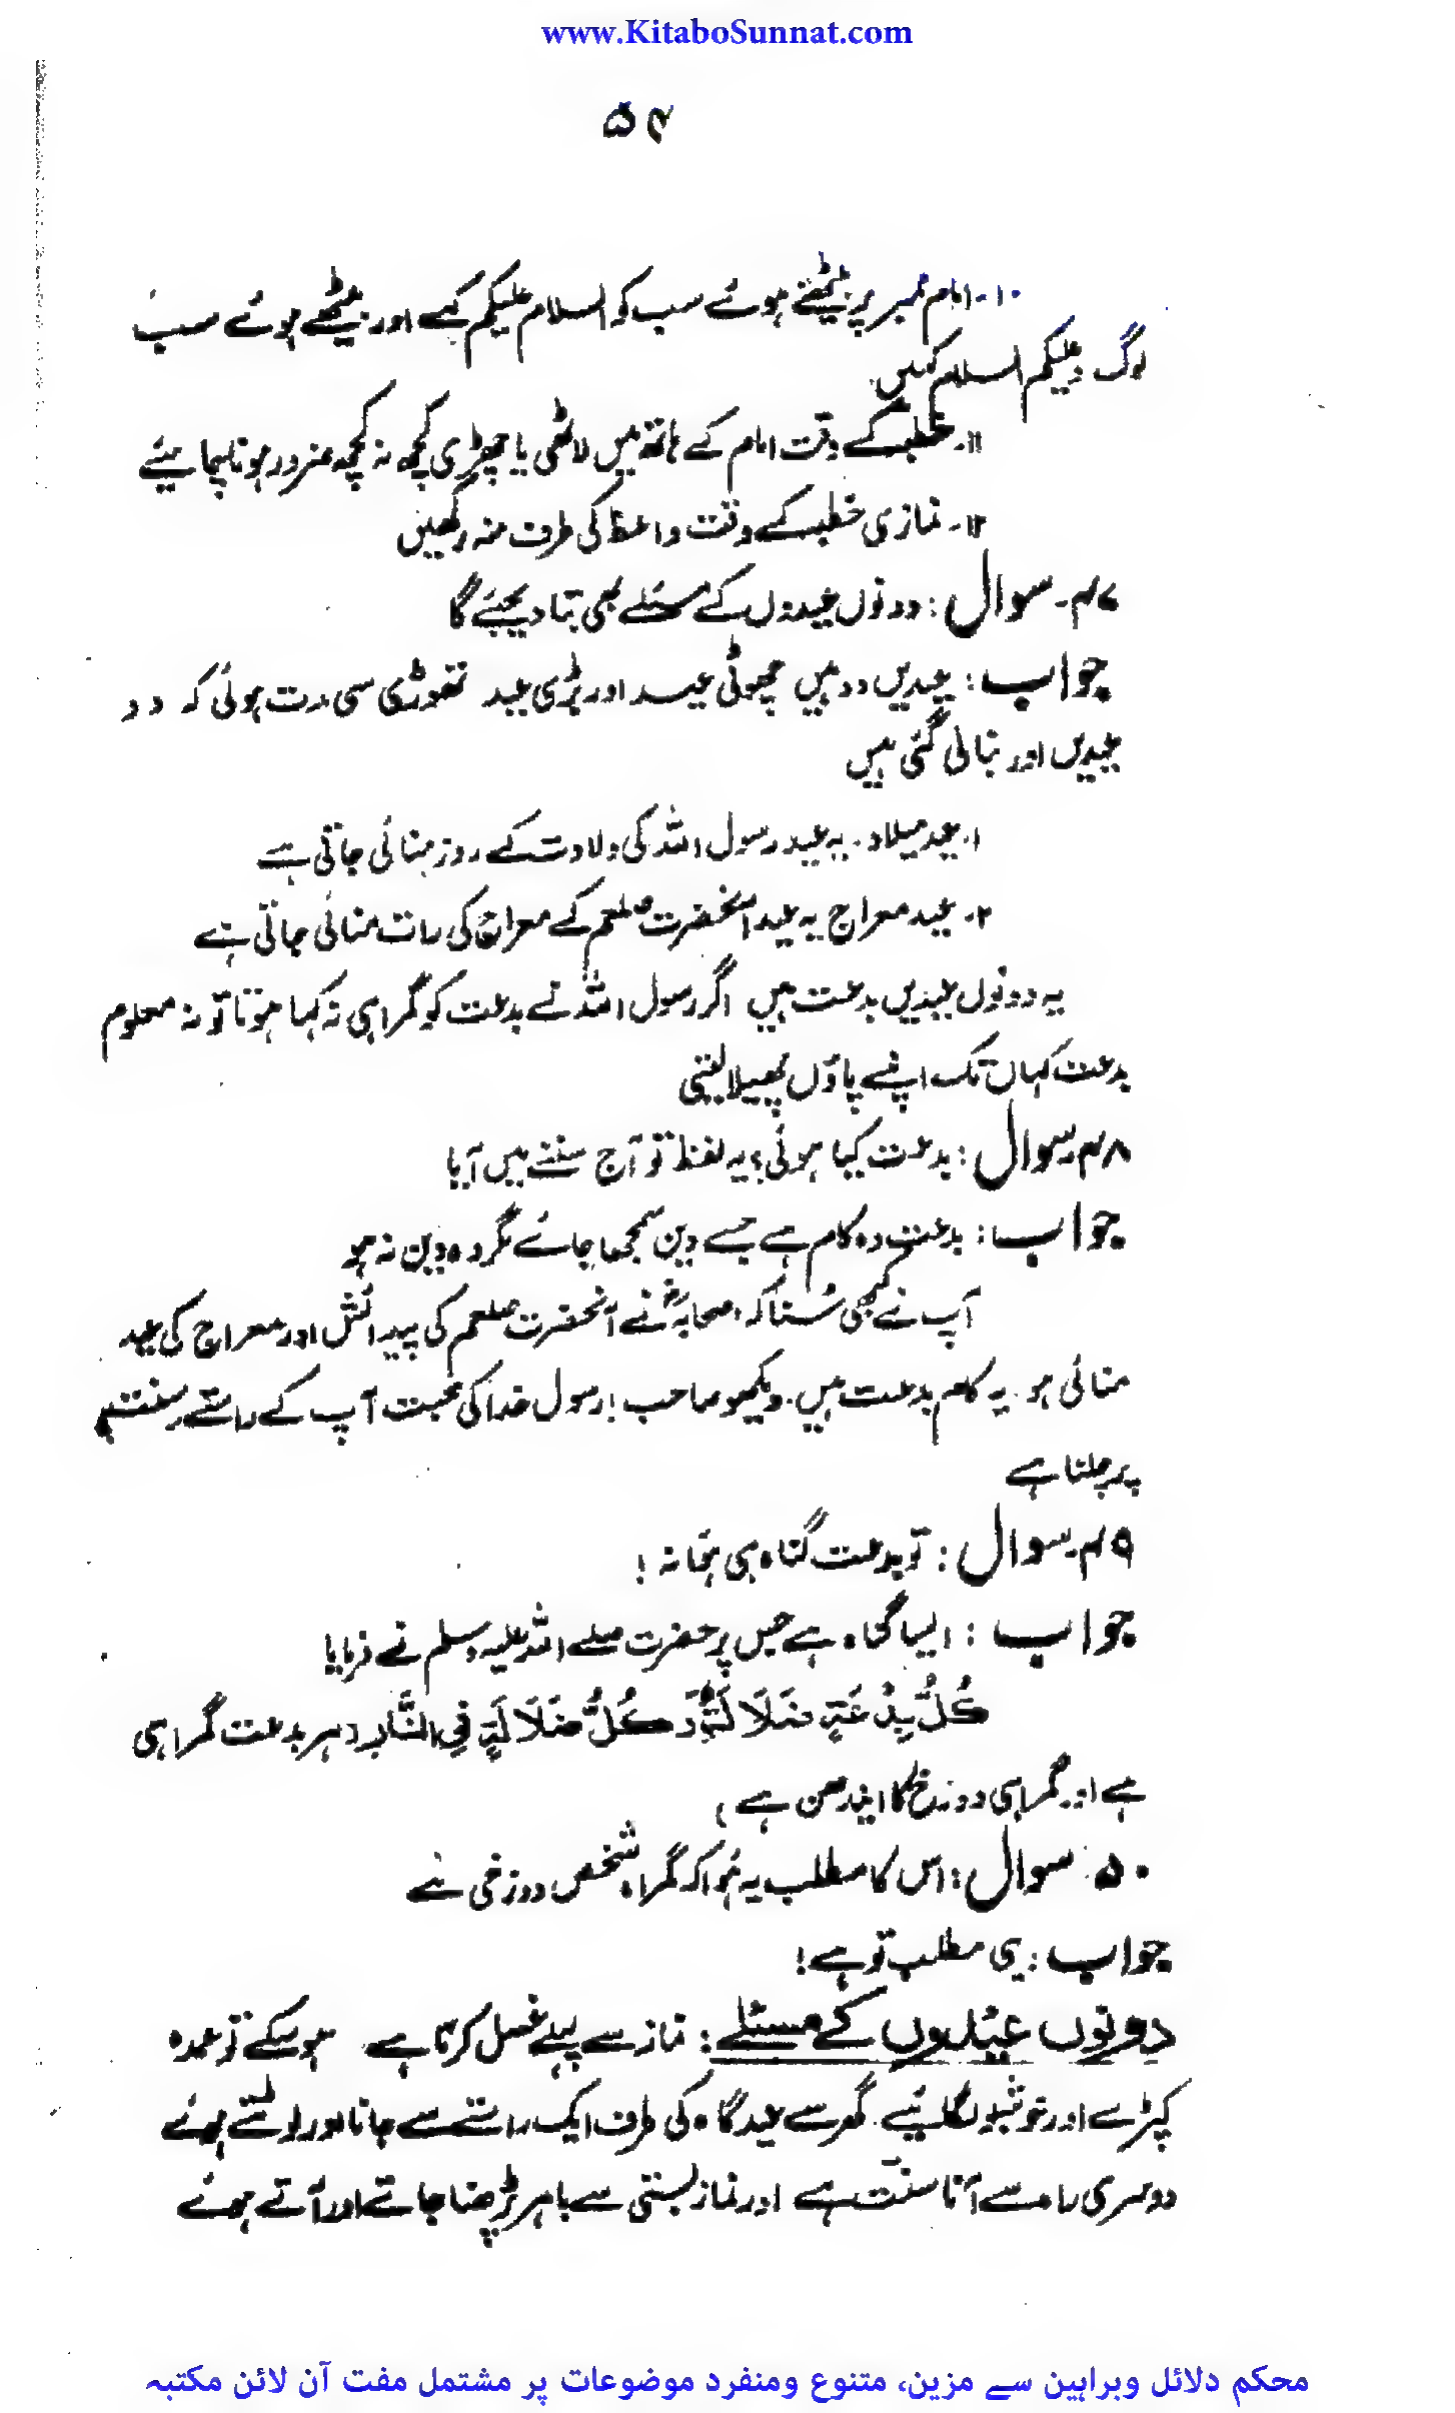 www.KitaboSunnat.com
۵۶
۱۰۔ امام ممبر پر بیٹھتے ہوئے سب کو السلام علیکم کہے اور بیٹھے ہوئے سب
لوگ وعلیکم السلام کہیں
۱۱۔ خطبہ کے وقت امام کے ہاتھ میں لاٹھی یا چھڑی کچھ نہ کچھ ضرور ہونا چاہیئے
۱۲۔ نمازی خطبہ کے وقت واعظ کی طرف منہ رکھیں
۴۷۔ سوال : دونوں عیدوں کے مسئلے بھی بتا دیجیئے گا
جواب : عیدیں دو ہیں چھوٹی عید اور بڑی عید تھوڑی سی مدت ہوئی کہ دو
عیدیں اور بنالی گئی ہیں
۱۔ عید میلاد۔ یہ عید رسول اللہ کی ولادت کے روز منائی جاتی ہے
۲۔ عید معراج یہ عید آنحضرت صلعم کے معراج کی رات منائی جاتی ہے
یہ دونوں عیدیں بدعت ہیں اگر رسول اللہ نے بدعت کو گمراہی نہ کہا ہوتا تو نہ معلوم
بدعت کہاں تک اپنے پاؤں پھیلا لیتی
۴۸۔ سوال : بدعت کیا ہوئی؟ یہ لفظ تو آج سننے میں آیا
جواب : بدعت وہ کام ہے جسے دین سمجھا جائے مگر وہ دین نہ ہو
آپ نے کبھی سُنا کہ صحابہؓ نے آنحضرت صلعم کی پیدائش اور معراج کی عید
منائی ہو۔ یہ کام بدعت ہیں۔ دیکھو صاحب ! رسول خدا کی محبت آپ کے راستے (سنت)
پر چلنا ہے
۴۹۔ سوال : تو بدعت گناہ ہی ہوَا نہ !
جواب : ایسا گناہ ہے جس پر حضرت صلے اللہ علیہ وسلم نے فرمایا
كُلُّ بِدْعَةٍ ضَلَالَةٌ وَكُلُّ ضَلَالَةٍ فِي النَّارِ (ہر بدعت گمراہی
ہے اور گمراہی دوزخ کا ایندھن ہے )
۵۰۔ سوال : اس کا مطلب یہ ہُوا کہ گمراہ شخص دوزخی ہے
جواب : یہی مطلب تو ہے !
دونوں عیدوں کے مسئلے : نماز سے پہلے غسل کرنا ہے ہو سکے تو عمدہ
کپڑے اور خوشبو لگائیے۔ گھر سے عیدگاہ کی طرف ایک راستے سے جانا اور لوٹتے ہوئے
دوسری راہ سے آنا سنت ہے اور نماز بستی سے باہر پڑھنا جاتے اور آتے ہوئے
محکم دلائل وبراہین سے مزین، متنوع ومنفرد موضوعات پر مشتمل مفت آن لائن مکتبہ